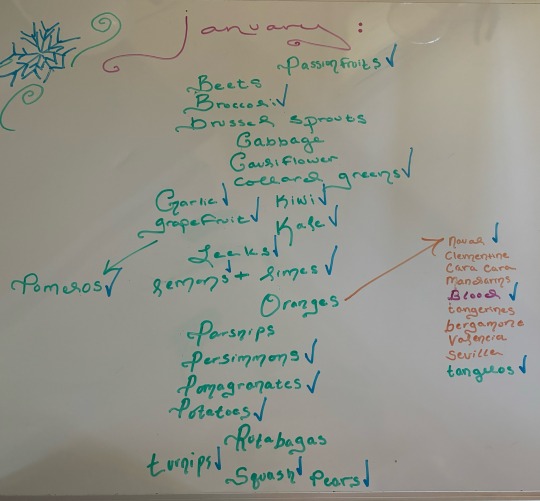 January:
Passionfruits ✓
Beets
Broccoli ✓
brussel sprouts
Cabbage
Cauliflower
collard greens ✓
Garlic ✓ Kiwi ✓
grapefruit ✓ Kale ✓
Leeks ✓
Pomelos ✓ lemons + limes ✓
Oranges
Parsnips
Persimmons ✓
Pomagranates ✓
Potatoes ✓
Rutabagas
turnips ✓ Squash ✓ Pears ✓
naval ✓
Clementine
Cara Cara
mandarins
Blood ✓
tangerines
bergamone
Valencia
Seville
tangelos ✓